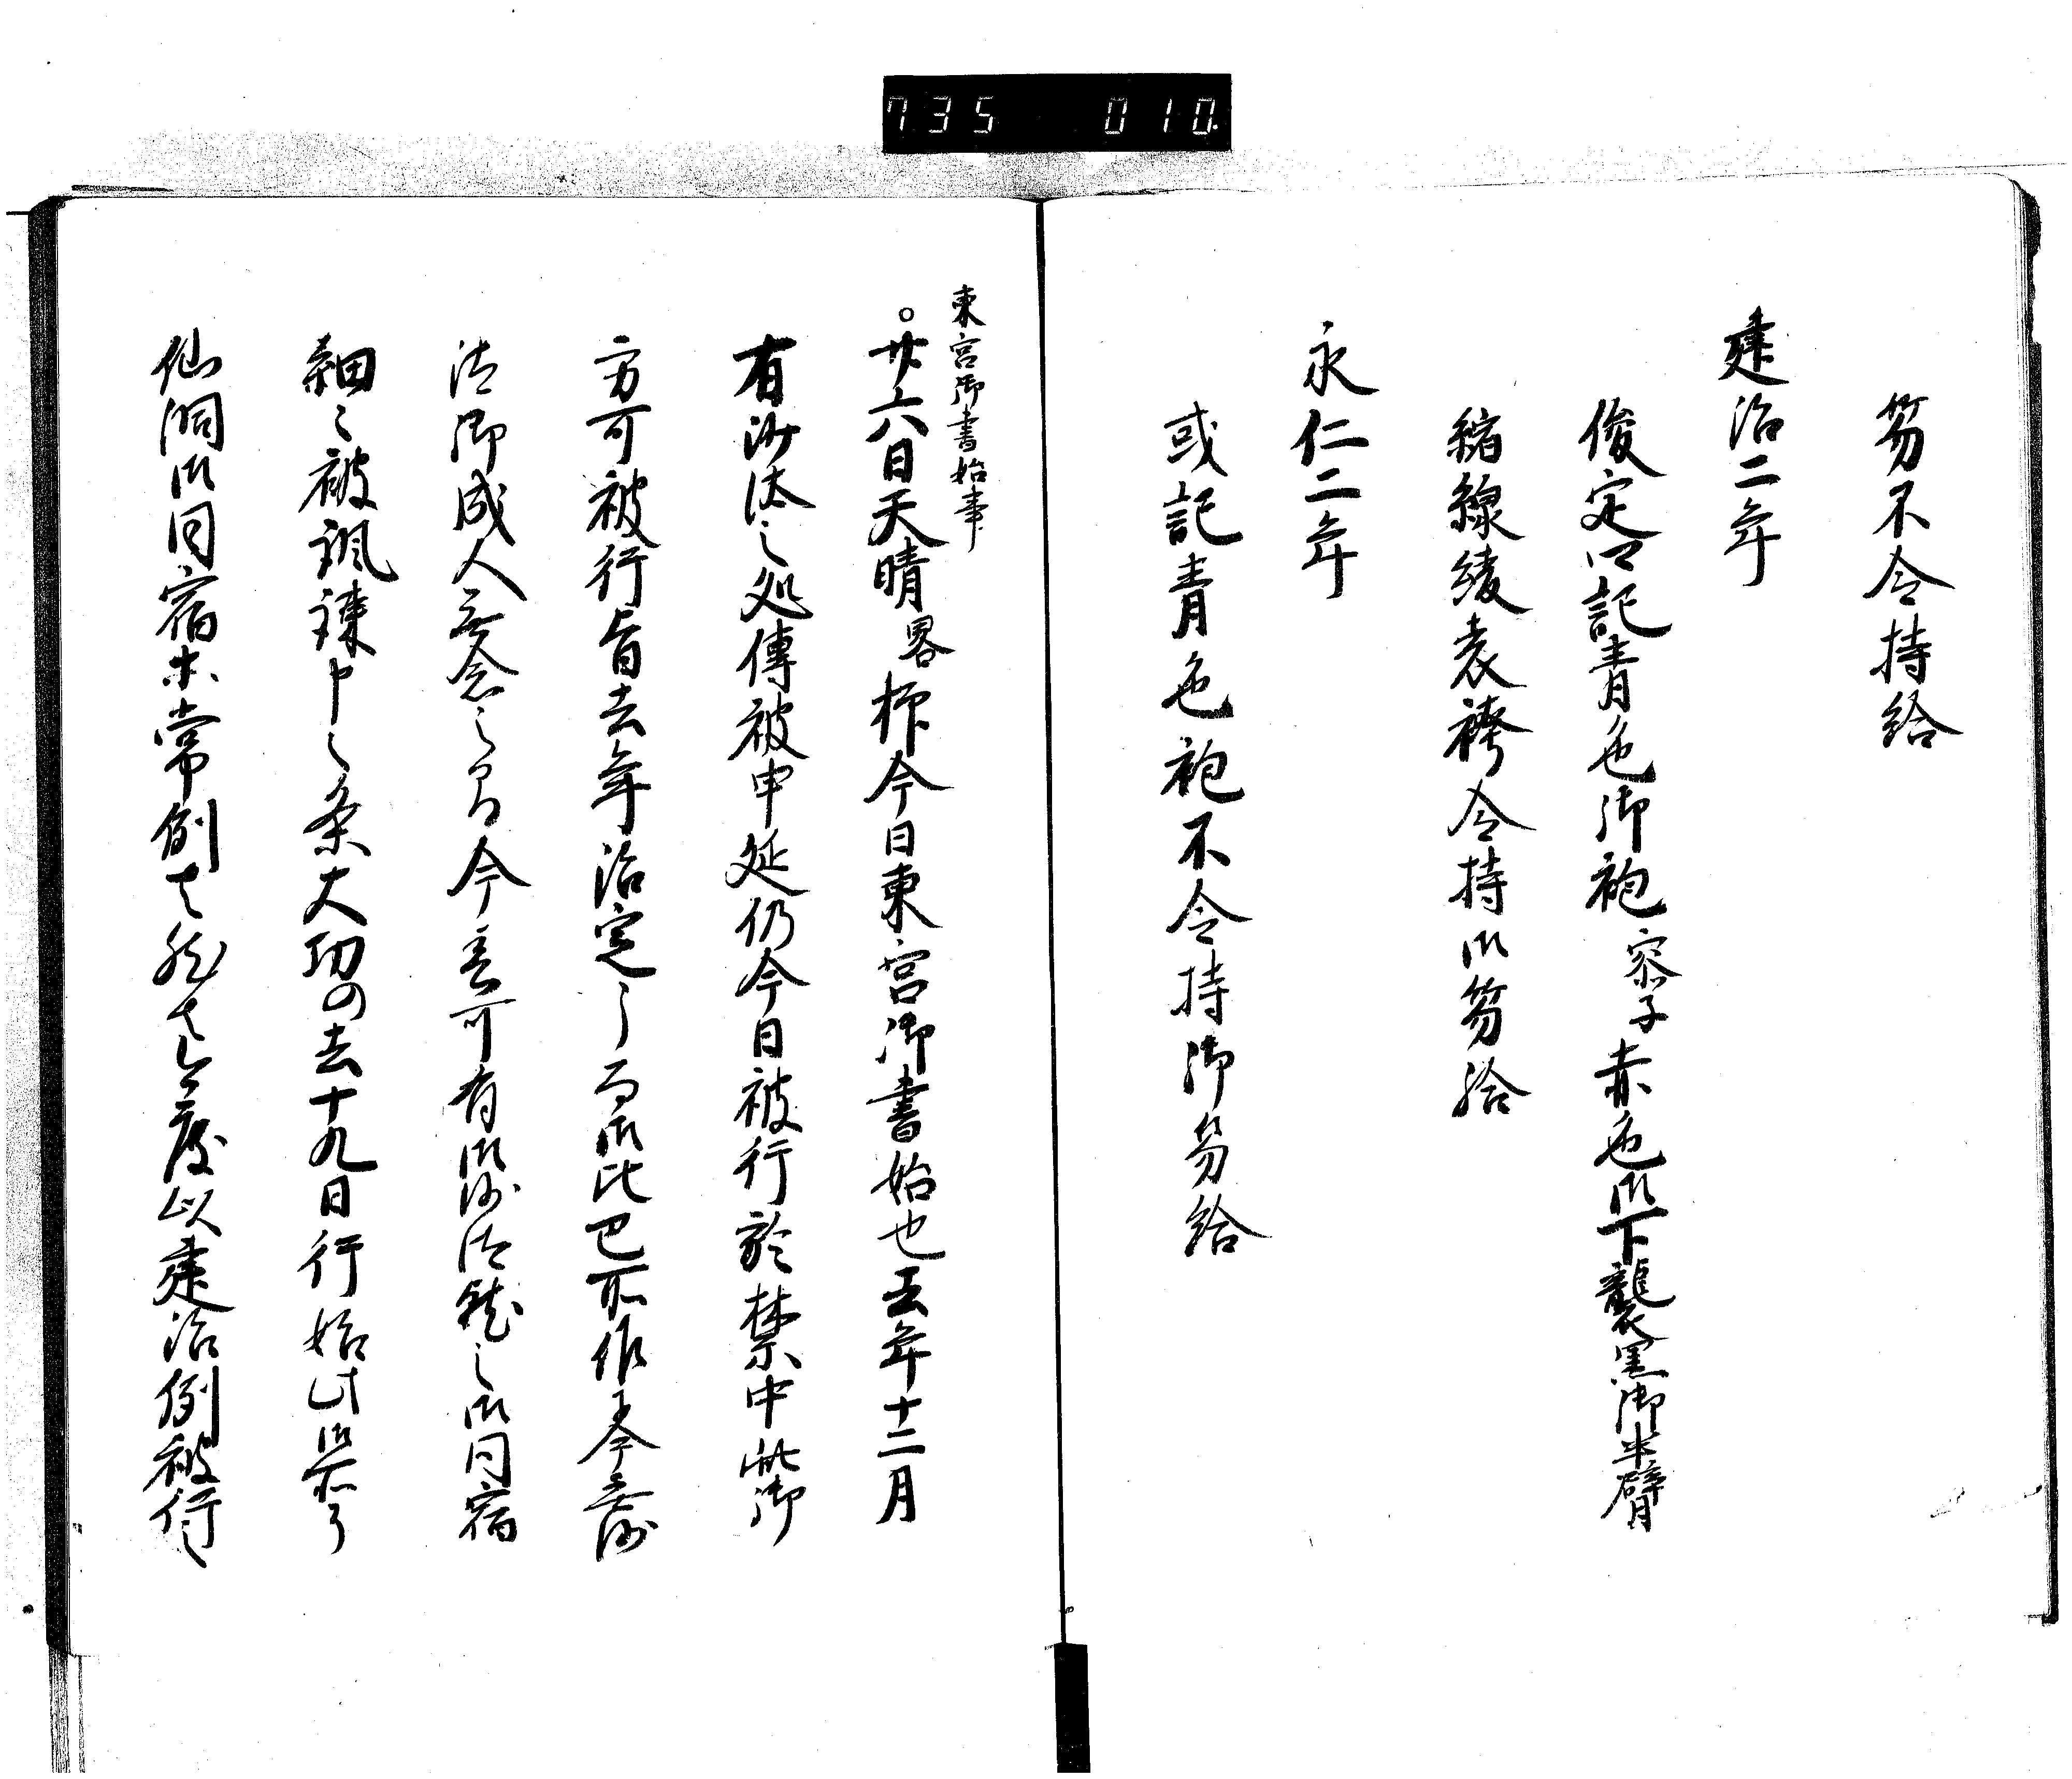 735 010
笏不令持給
建治二年
俊定口記青色御袍 赤色御下襲黒御半臂
縮線綾表袴令持御笏給
永仁二年
或記青色袍不令持御笏給
東宮御書始事
。廿六日天晴畧抑今日東宮御書始也去年十二月
有沙汰之処傳被申延仍今日被行於禁中此御
方可被行旨去年治定了而御比巴所作未今無沙
汰御成人無念之間今春可有御沙汰就之御同宿
細々被諷諫申之条大切々去十九日行始此御所了
仙洞御同宿未常例也然而度以建治例被行之